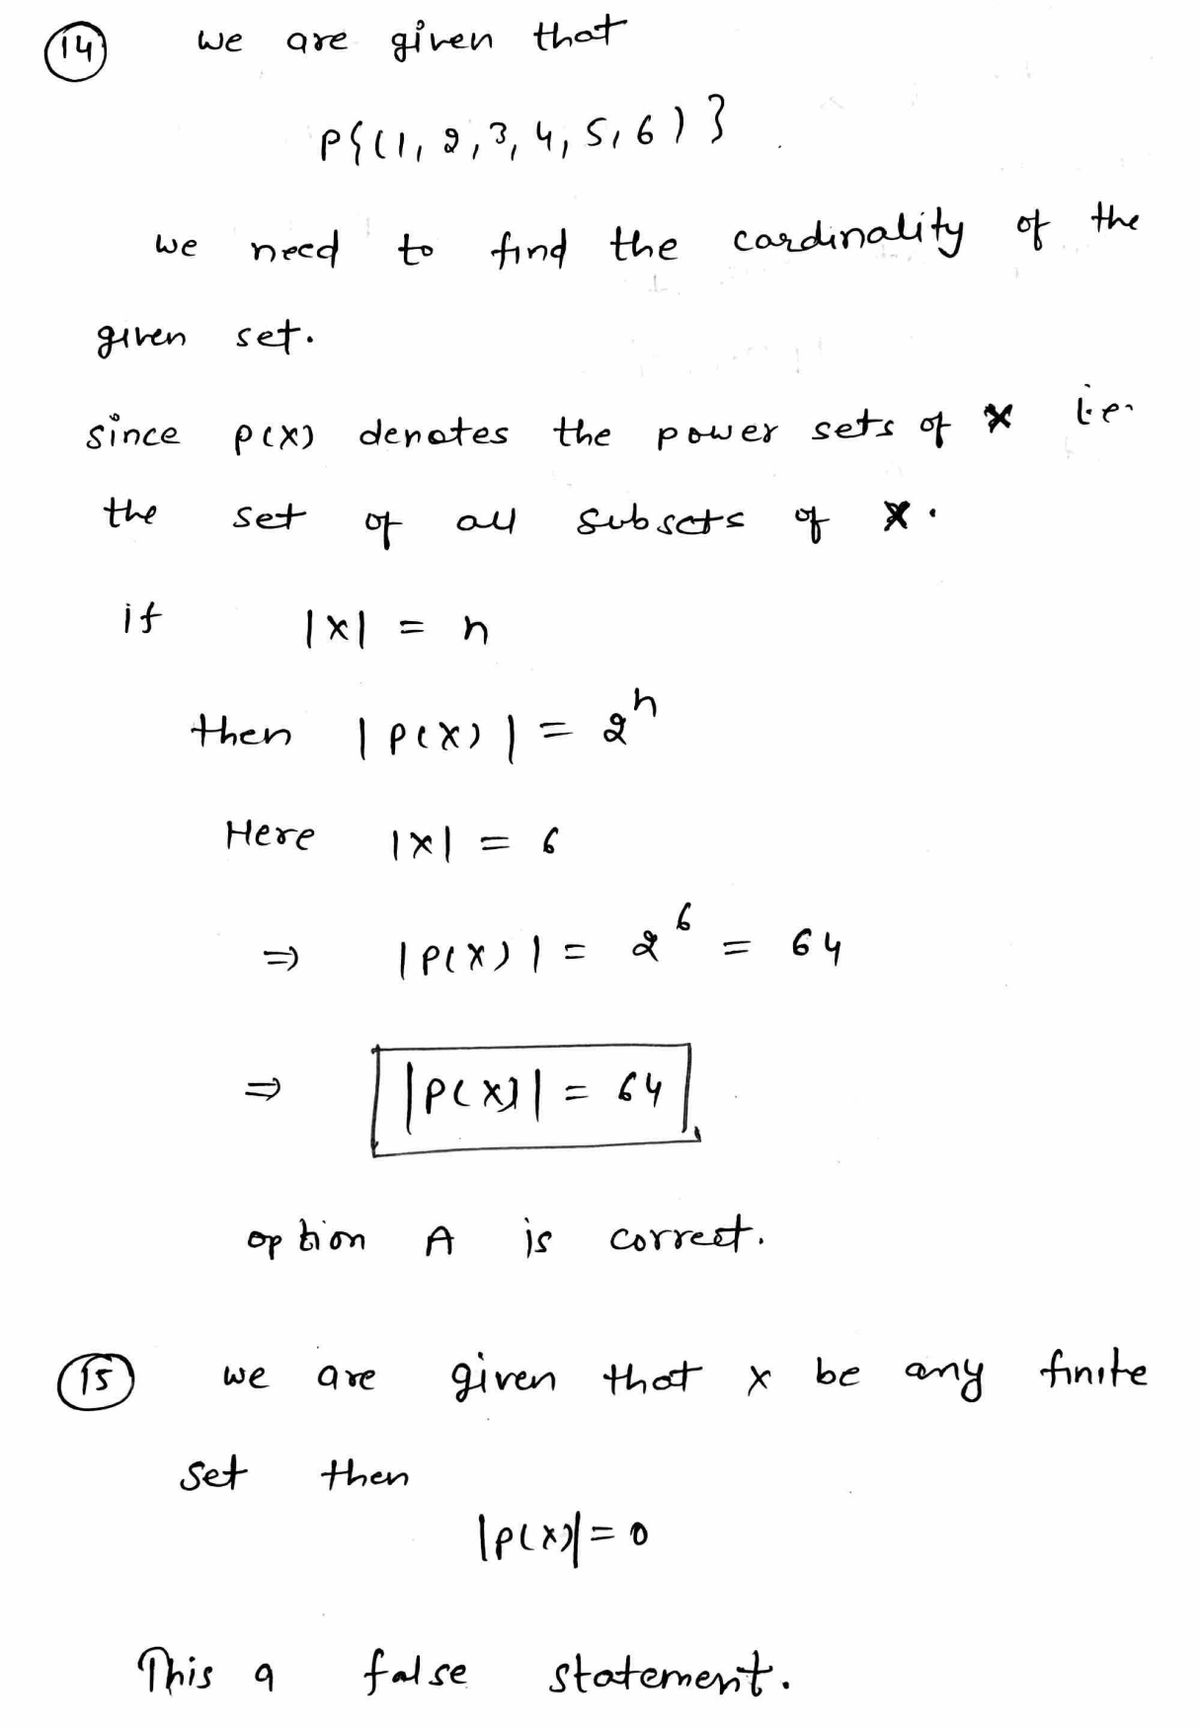 14 we are given that
P{(1, 2, 3, 4, 5, 6)}
we need to find the cardinality of the
given set.
since P(X) denotes the power sets of X i.e.
the set of all subsets of X.
if |X| = n
then |P(X)| = 2^n
Here |X| = 6
⇒ |P(X)| = 2^6 = 64
⇒ |P(X)| = 64
option A is correct.
15 we are given that x be any finite
set then
|P(X)| = 0
This a false statement.